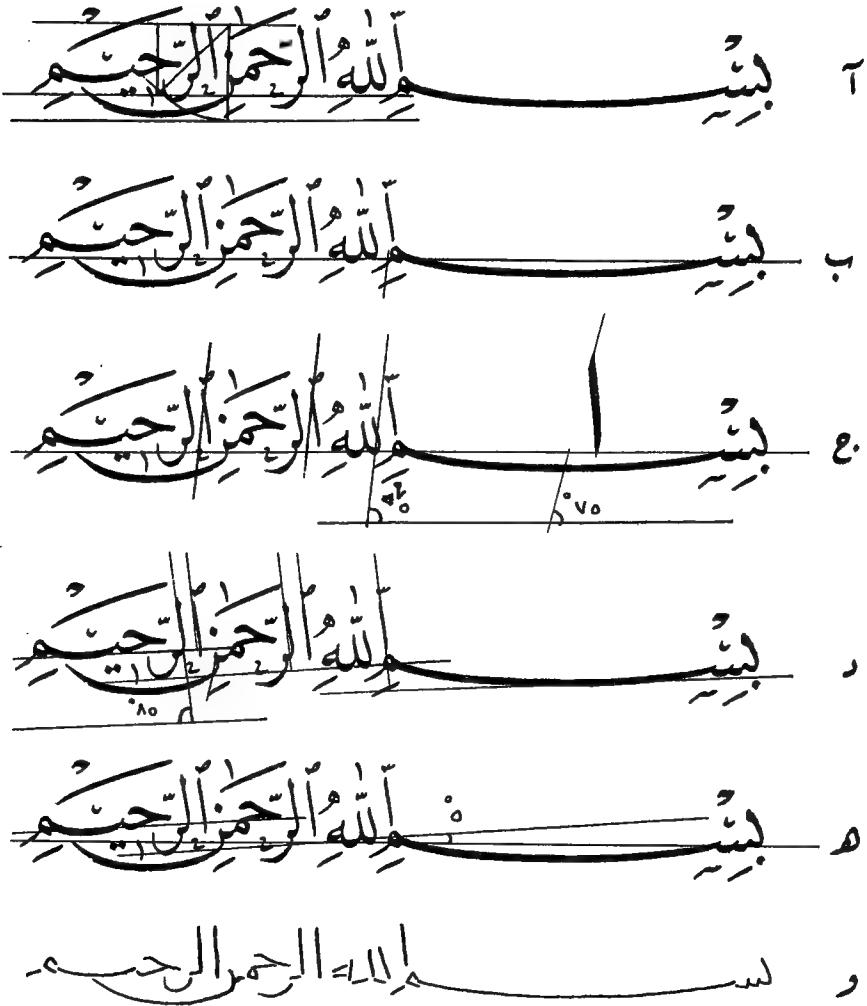 آ بِسْمِ ٱللّٰهِ ٱلرَّحْمٰنِ ٱلرَّحِيمِ
ب بِسْمِ ٱللّٰهِ ٱلرَّحْمٰنِ ٱلرَّحِيمِ
ج بِسْمِ ٱللّٰهِ ٱلرَّحْمٰنِ ٱلرَّحِيمِ
ا
٧٥°
د بِسْمِ ٱللّٰهِ ٱلرَّحْمٰنِ ٱلرَّحِيمِ
٨٥°
ه بِسْمِ ٱللّٰهِ ٱلرَّحْمٰنِ ٱلرَّحِيمِ
٥°
و بسم الله الرحمن الرحيم